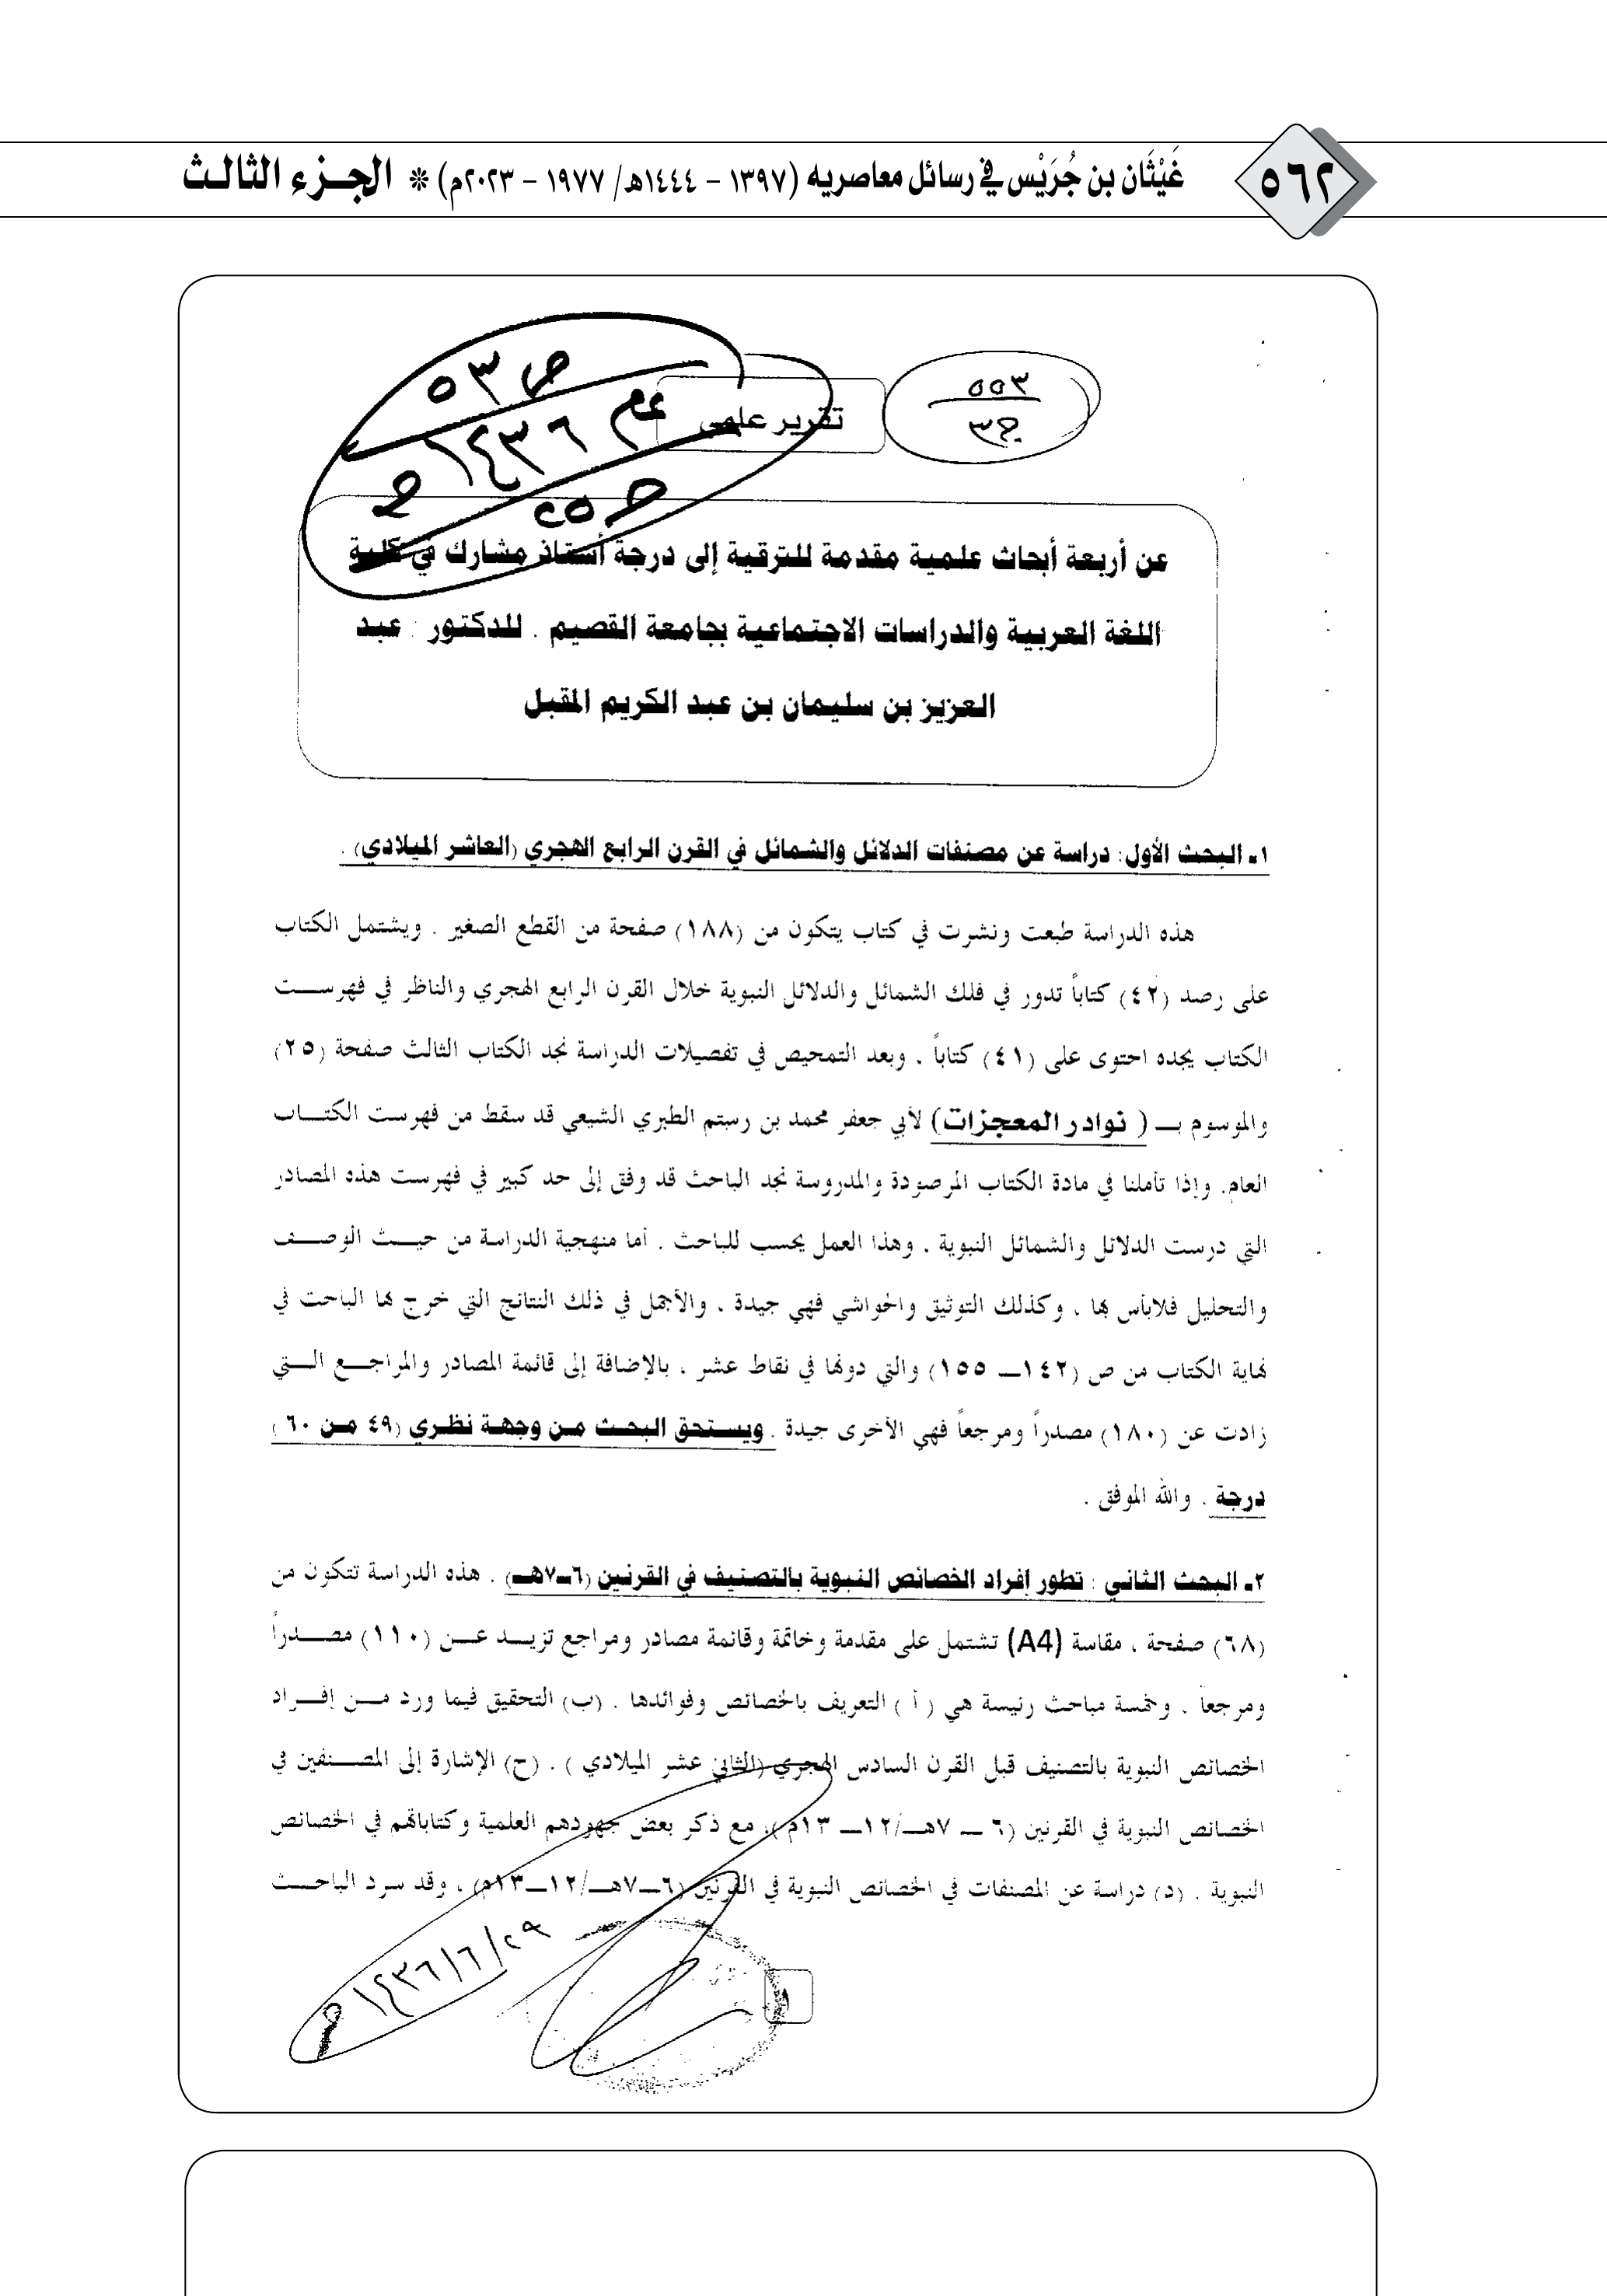 ٥٦٢
غَيْثَان بن جُرَيْس في رسائل معاصريه (١٣٩٧ - ١٤٤٤هـ/ ١٩٧٧ - ٢٠٢٣م) * الجـزء الثالـث
ص ٥٣
عام ١٤٣٦
٥٥٣
ج٣
تقرير علمي
عن أربعة أبحاث علمية مقدمة للترقية إلى درجة أستاذ مشارك في كلية
اللغة العربية والدراسات الاجتماعية بجامعة القصيم . للدكتور : عبد
العزيز بن سليمان بن عبد الكريم المقبل
١ـ البحث الأول: دراسة عن مصنفات الدلائل والشمائل في القرن الرابع الهجري (العاشر الميلادي) .
هذه الدراسة طبعت ونشرت في كتاب يتكون من (١٨٨) صفحة من القطع الصغير . ويشتمل الكتاب
على رصد (٤٢) كتاباً تدور في فلك الشمائل والدلائل النبوية خلال القرن الرابع الهجري والناظر في فهرســت
الكتاب يجده احتوى على (٤١) كتاباً . وبعد التمحيص في تفصيلات الدراسة نجد الكتاب الثالث صفحة (٢٥)
والموسوم بـ ( نوادر المعجزات) لأبي جعفر محمد بن رستم الطبري الشيعي قد سقط من فهرست الكتــاب
العام. وإذا تأملنا في مادة الكتاب المرصودة والمدروسة نجد الباحث قد وفق إلى حد كبير في فهرست هذه المصادر
التي درست الدلائل والشمائل النبوية . وهذا العمل يحسب للباحث . أما منهجية الدراسة من حيــث الوصــف
والتحليل فلابأس بها . وكذلك التوثيق والحواشي فهي جيدة . والأجمل في ذلك النتائج التي خرج بها الباحث في
نهاية الكتاب من ص (١٤٢ـ ١٥٥) والتي دونها في نقاط عشر . بالإضافة إلى قائمة المصادر والمراجــع الــتي
زادت عن (١٨٠) مصدراً ومرجعاً فهي الأخرى جيدة . ويستحق البحث من وجهة نظري (٤٩ من ٦٠ )
درجة . والله الموفق .
٢ـ البحث الثاني : تطور إفراد الخصائص النبوية بالتصنيف في القرنين (٦ـ٧هـ) . هذه الدراسة تتكون من
(٦٨) صفحة ، مقاسة (A4) تشتمل على مقدمة وخاتمة وقائمة مصادر ومراجع تزيــد عــن (١١٠) مصــدراً
ومرجعاً . وخمسة مباحث رئيسة هي ( أ ) التعريف بالخصائص وفوائدها . (ب) التحقيق فيما ورد مــن إفــراد
الخصائص النبوية بالتصنيف قبل القرن السادس الهجري (الثاني عشر الميلادي ) . (ح) الإشارة إلى المصــنفين في
الخصائص النبوية في القرنين (٦ ــ ٧هـ/١٢ـ ١٣م ). مع ذكر بعض جهودهم العلمية وكتاباتهم في الخصائص
النبوية . (د) دراسة عن المصنفات في الخصائص النبوية في القرنين (٦ـ٧هـ/١٢ـ١٣م) . وقد سرد الباحــث
١٤٣٦/٦/٢٩
١